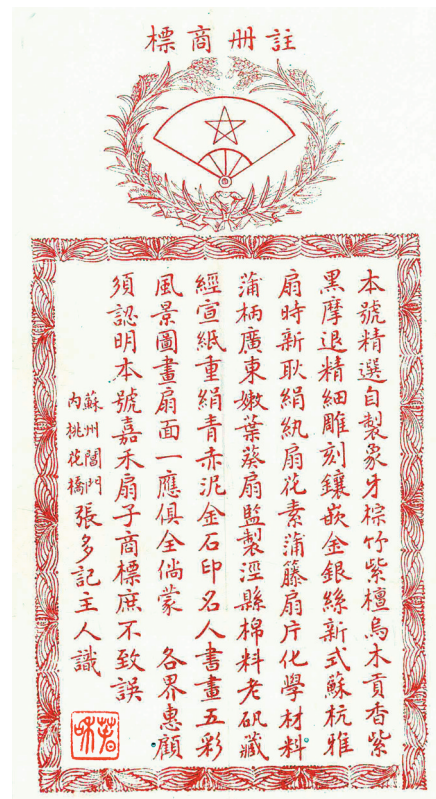 註冊商標
本號精選自製象牙棕竹紫檀烏木貢香紫
黑摩退精細雕刻鑲嵌金銀絲新式蘇杭雅
扇時新耿絹紈扇花素蒲籐扇片化學材料
蒲柄廣東嫩葉葵扇監製涇縣棉料老矾藏
經宣紙重絹青赤泥金石印名人書畫五彩
風景圖畫扇面一應俱全倘蒙 各界惠顧
須認明本號嘉禾扇子商標庶不致誤
蘇州閶門
內桃花橋
張多記主人識